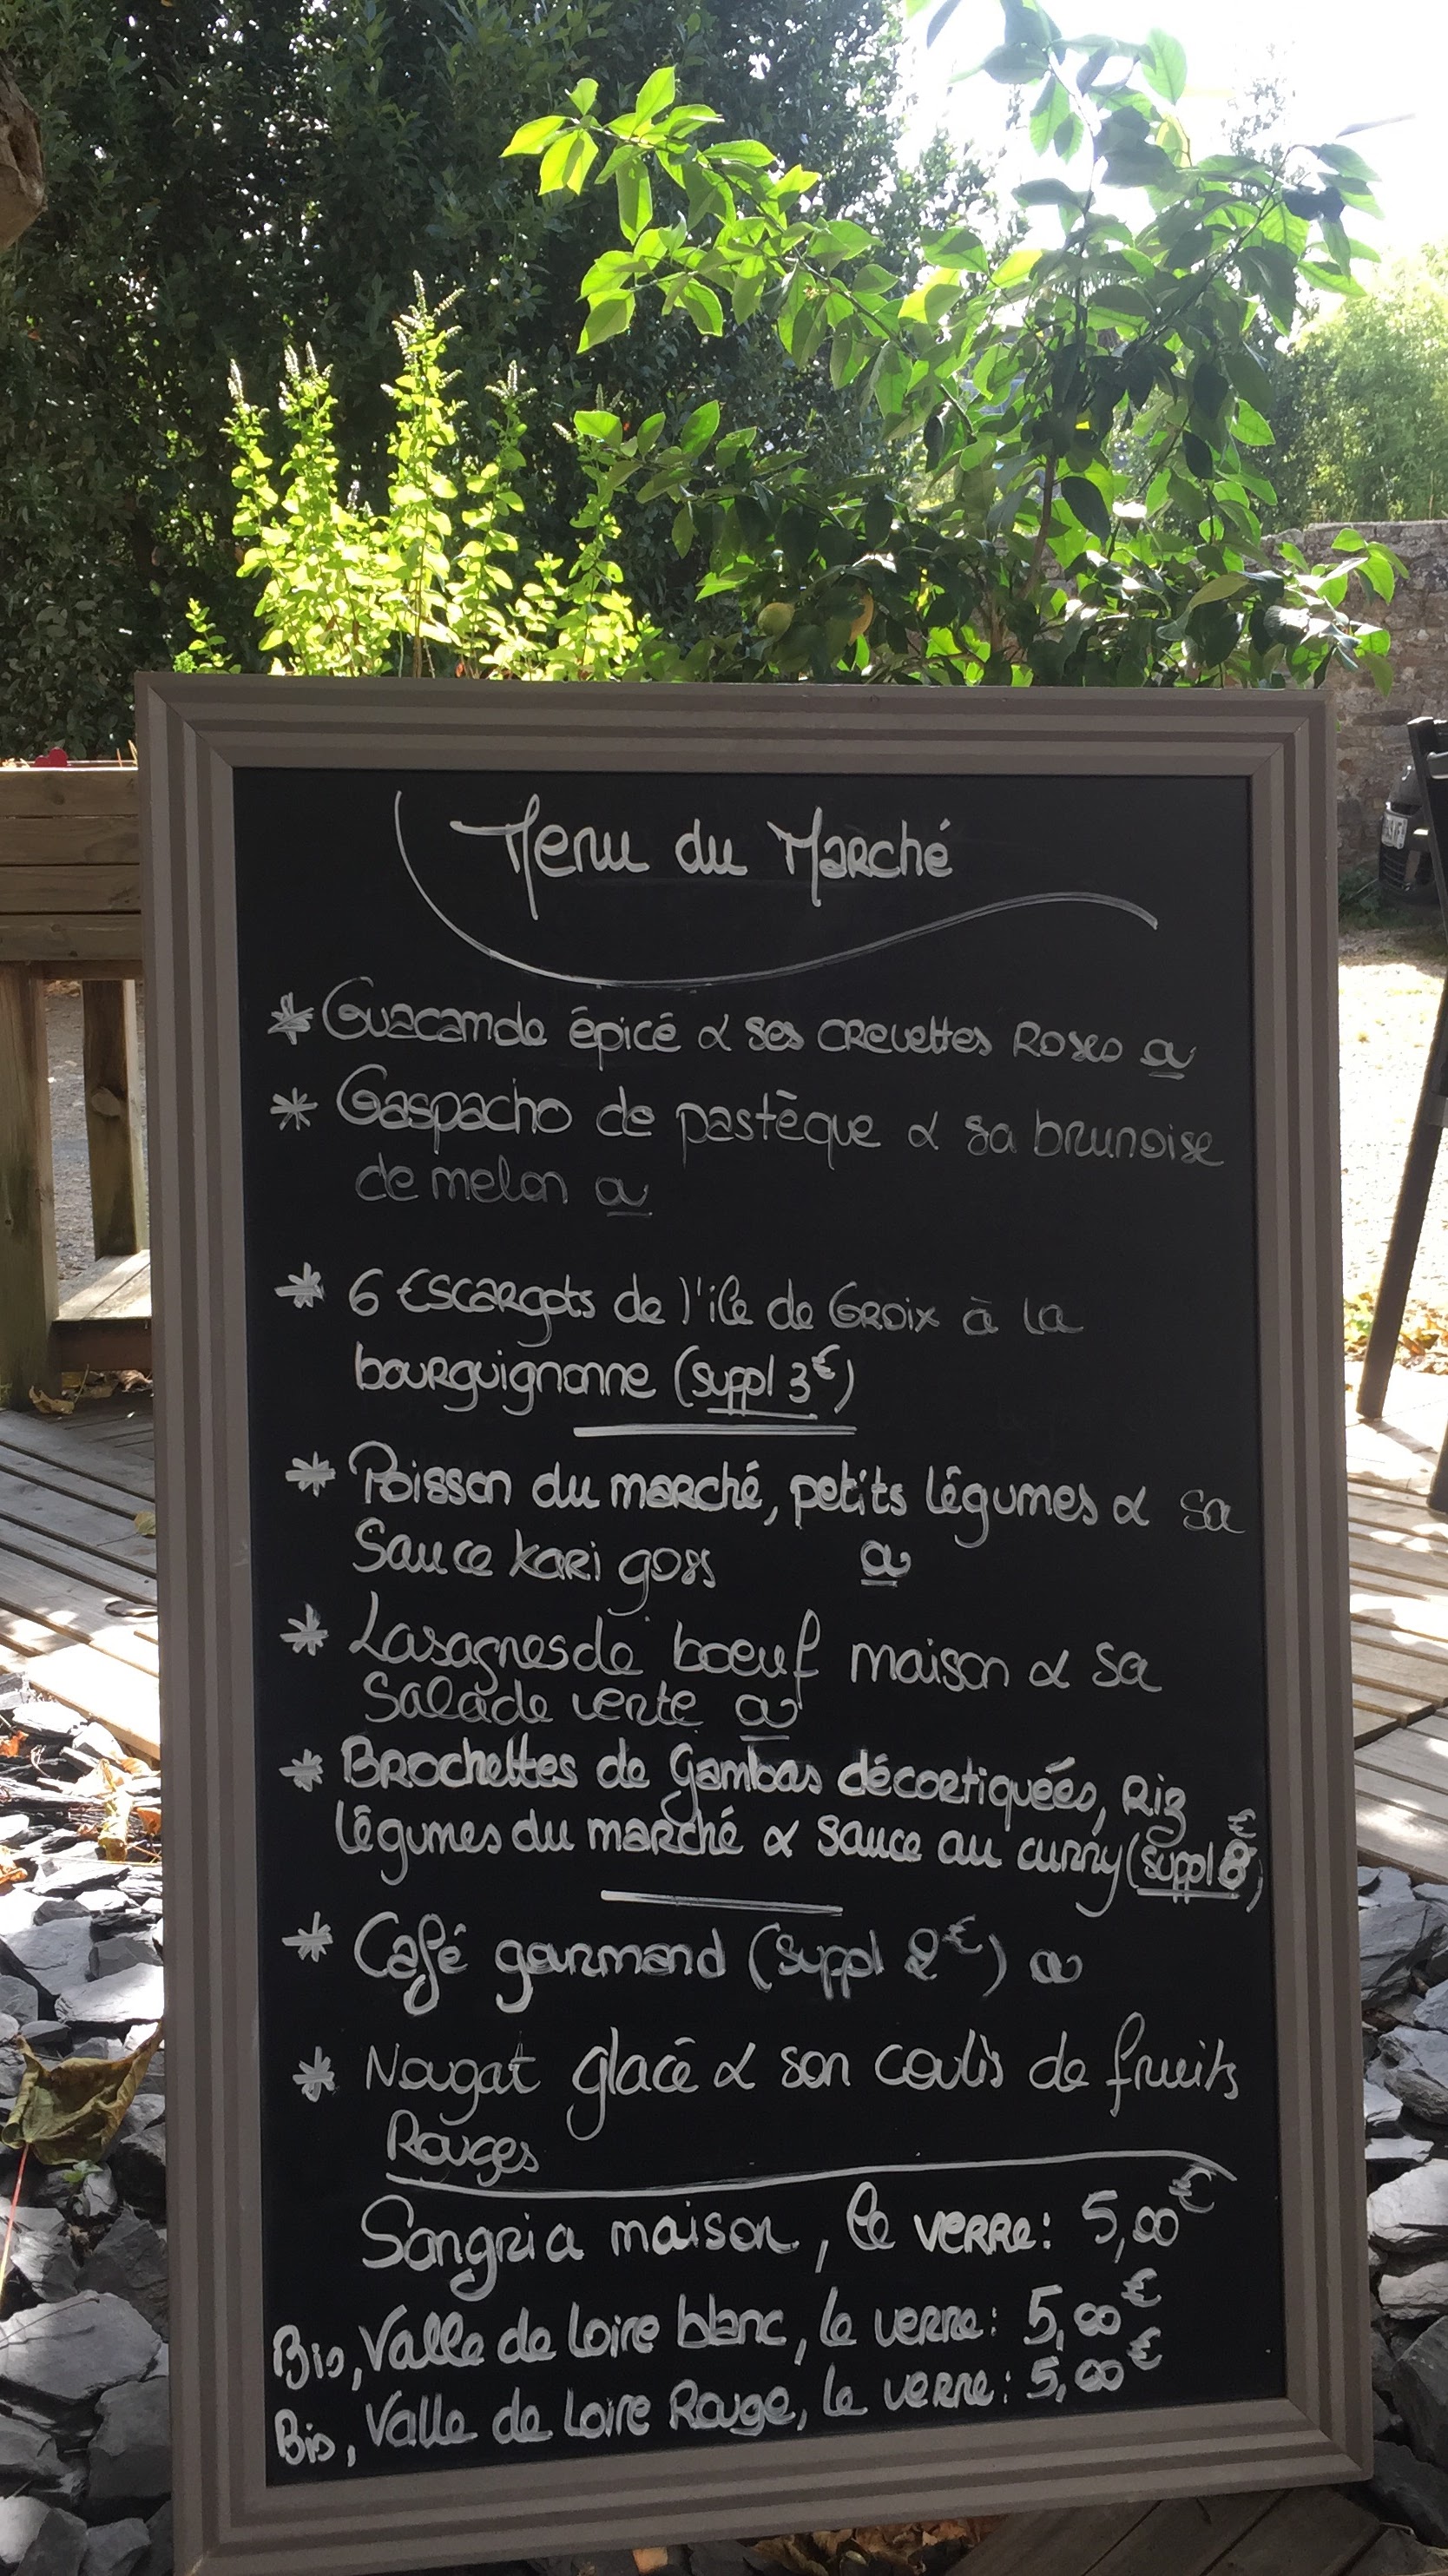 Menu du Marché
* Guacamole épicé & ses crevettes Roses ou
* Gaspacho de pastèque & sa brunoise
de melon ou
* 6 Escargots de l'ile de Groix à la
bourguignonne (suppl 3€)
* Poisson du marché, petits légumes & sa
Sauce kari goss ou
* Lasagnes de boeuf maison & sa
Salade verte ou
* Brochettes de Gambas décortiquées, Riz
légumes du marché & sauce au curry (suppl 8€)
* Café gourmand (suppl 2€) ou
* Nougat glacé & son coulis de fruits
Rouges
Sangria maison, le verre: 5,00€
Bio, Valle de Loire blanc, le verre: 5,00€
Bio, Valle de Loire Rouge, le verre: 5,00€